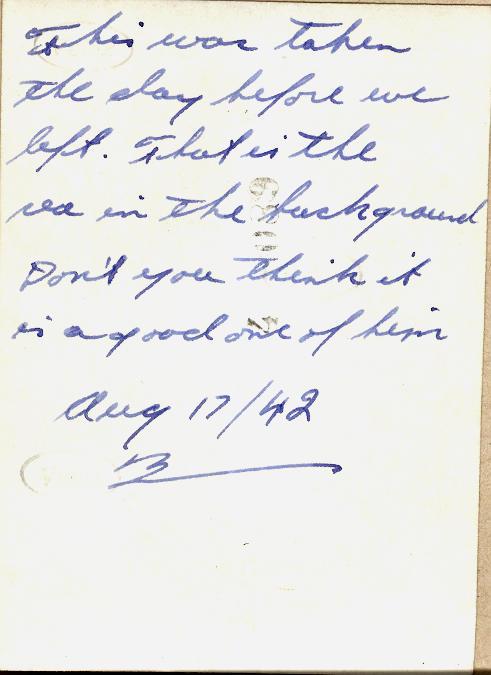 This was taken
the day before we
left. That is the
sea in the background
Don't you think it
is a good one of him
Aug 17/42
B